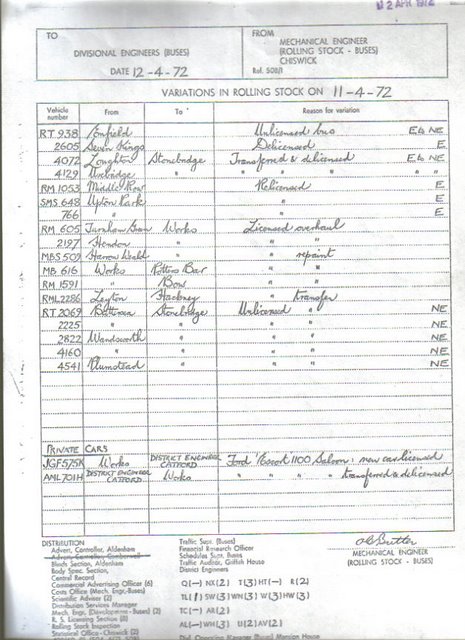 12 APR 1972
TO
DIVISIONAL ENGINEERS (BUSES)
DATE 12-4-72
FROM
MECHANICAL ENGINEER
(ROLLING STOCK - BUSES)
CHISWICK
Ref. 508/1
VARIATIONS IN ROLLING STOCK ON 11-4-72
Vehicle number From To Reason for variation
RT 938 Enfield Unlicensed bus E & NE
2605 Seven Kings Delicensed E
4072 Loughton Stonebridge Transferred & delicensed E & NE
4129 Uxbridge " " " " NE
RM 1053 Middle Row Relicensed E
SMS 648 Upton Park " E
766 " " E
RM 605 Turnham Green Works Licensed overhaul
2197 Hendon " " "
MBS 509 Harrow Weald " " repaint
MB 616 Works Potters Bar " "
RM 1591 " Bow " "
RML 2286 Leyton Hackney " transfer
RT 2069 Battersea Stonebridge Unlicensed " NE
2225 " " " " NE
2822 Wandsworth " " " NE
4160 " " " " NE
4541 Plumstead " " " NE
PRIVATE CARS
JGF 575K Works DISTRICT ENGINEER CATFORD Ford 'Escort' 1100 Saloon: new car licensed
AML 701H DISTRICT ENGINEER CATFORD Works " " " " transferred & delicensed
DISTRIBUTION
Advert. Controller, Aldenham
Advert. Controller, Camberwell
Blinds Section, Aldenham
Body Spec. Section,
Central Record
Commercial Advertising Officer (6)
Costs Office (Mech. Engr.-Buses)
Scientific Adviser (2)
Distribution Services Manager
Mech. Engr. (Development - Buses) (2)
R. S. Licensing Section (8)
Rolling Stock Inspection
Statistical Office - Chiswick (2)
Traffic Supt. (Buses)
Financial Research Officer
Schedules Supt. (Buses)
Traffic Auditor, Griffith House
District Engineers
Q(-) NX(2) T(3) HT(-) R(2)
TL(1) SW(3) WN(3) W(3) HW(3)
TC(-) AR(2)
AL(-) WH(3) U(2) AV(2)
Divl. Operating Manager (Buses) Mansion House
MECHANICAL ENGINEER
(ROLLING STOCK - BUSES)